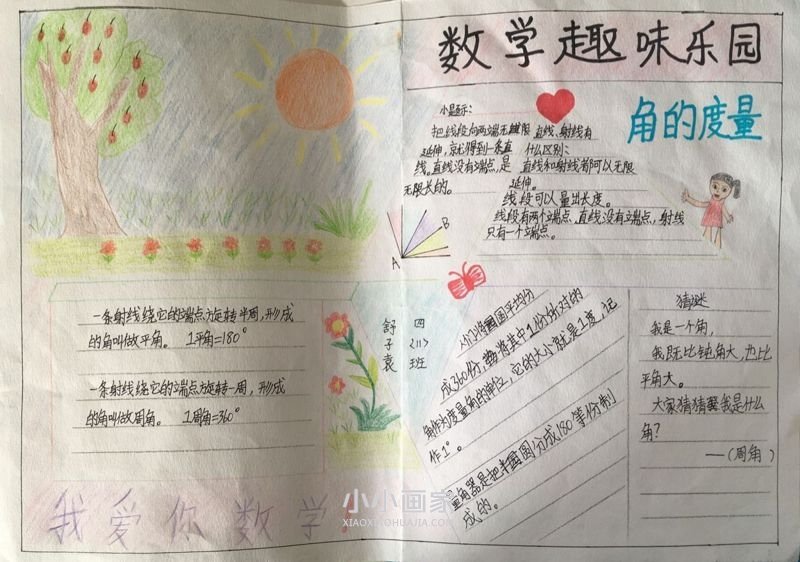 数学趣味乐园
角的度量
小提示:
把线段向两端无限
延伸,就得到一条直
线。直线没有端点,是
无限长的。
直线、射线有
什么区别:
直线和射线都可以无限
延伸。
线段可以量出长度。
线段有两个端点、直线没有端点,射线
只有一个端点。
A
B
一条射线绕它的端点旋转半周,形成
的角叫做平角。 1平角=180°
一条射线绕它的端点旋转一周,形成
的角叫做周角。 1周角=360°
四〈1〉班
舒子袁
人们将圆平均分
成360份,将其中1份所对的
角作为度量角的单位,它的大小就是1度,记
作1°。
量角器是把半圆分成180等份制
成的。
猜谜
我是一个角,
我既比钝角大,也比
平角大。
大家猜猜我是什么
角?
——(周角)
我爱你数学
小小画家
XIAOXIAOHUAJIA.COM